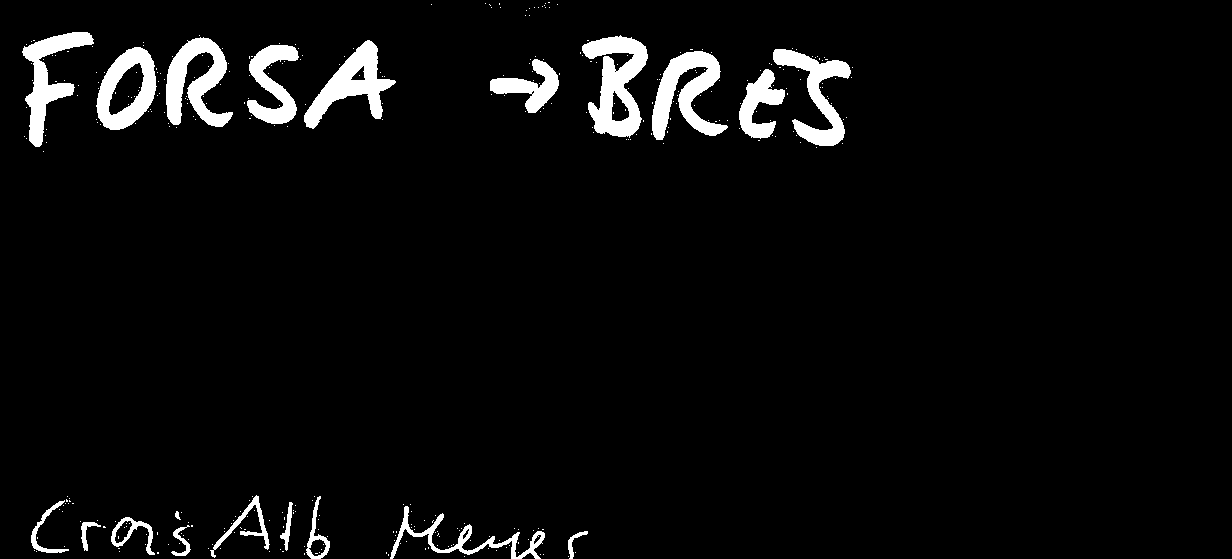 FORSA → BRES
Crois Alb Meyer